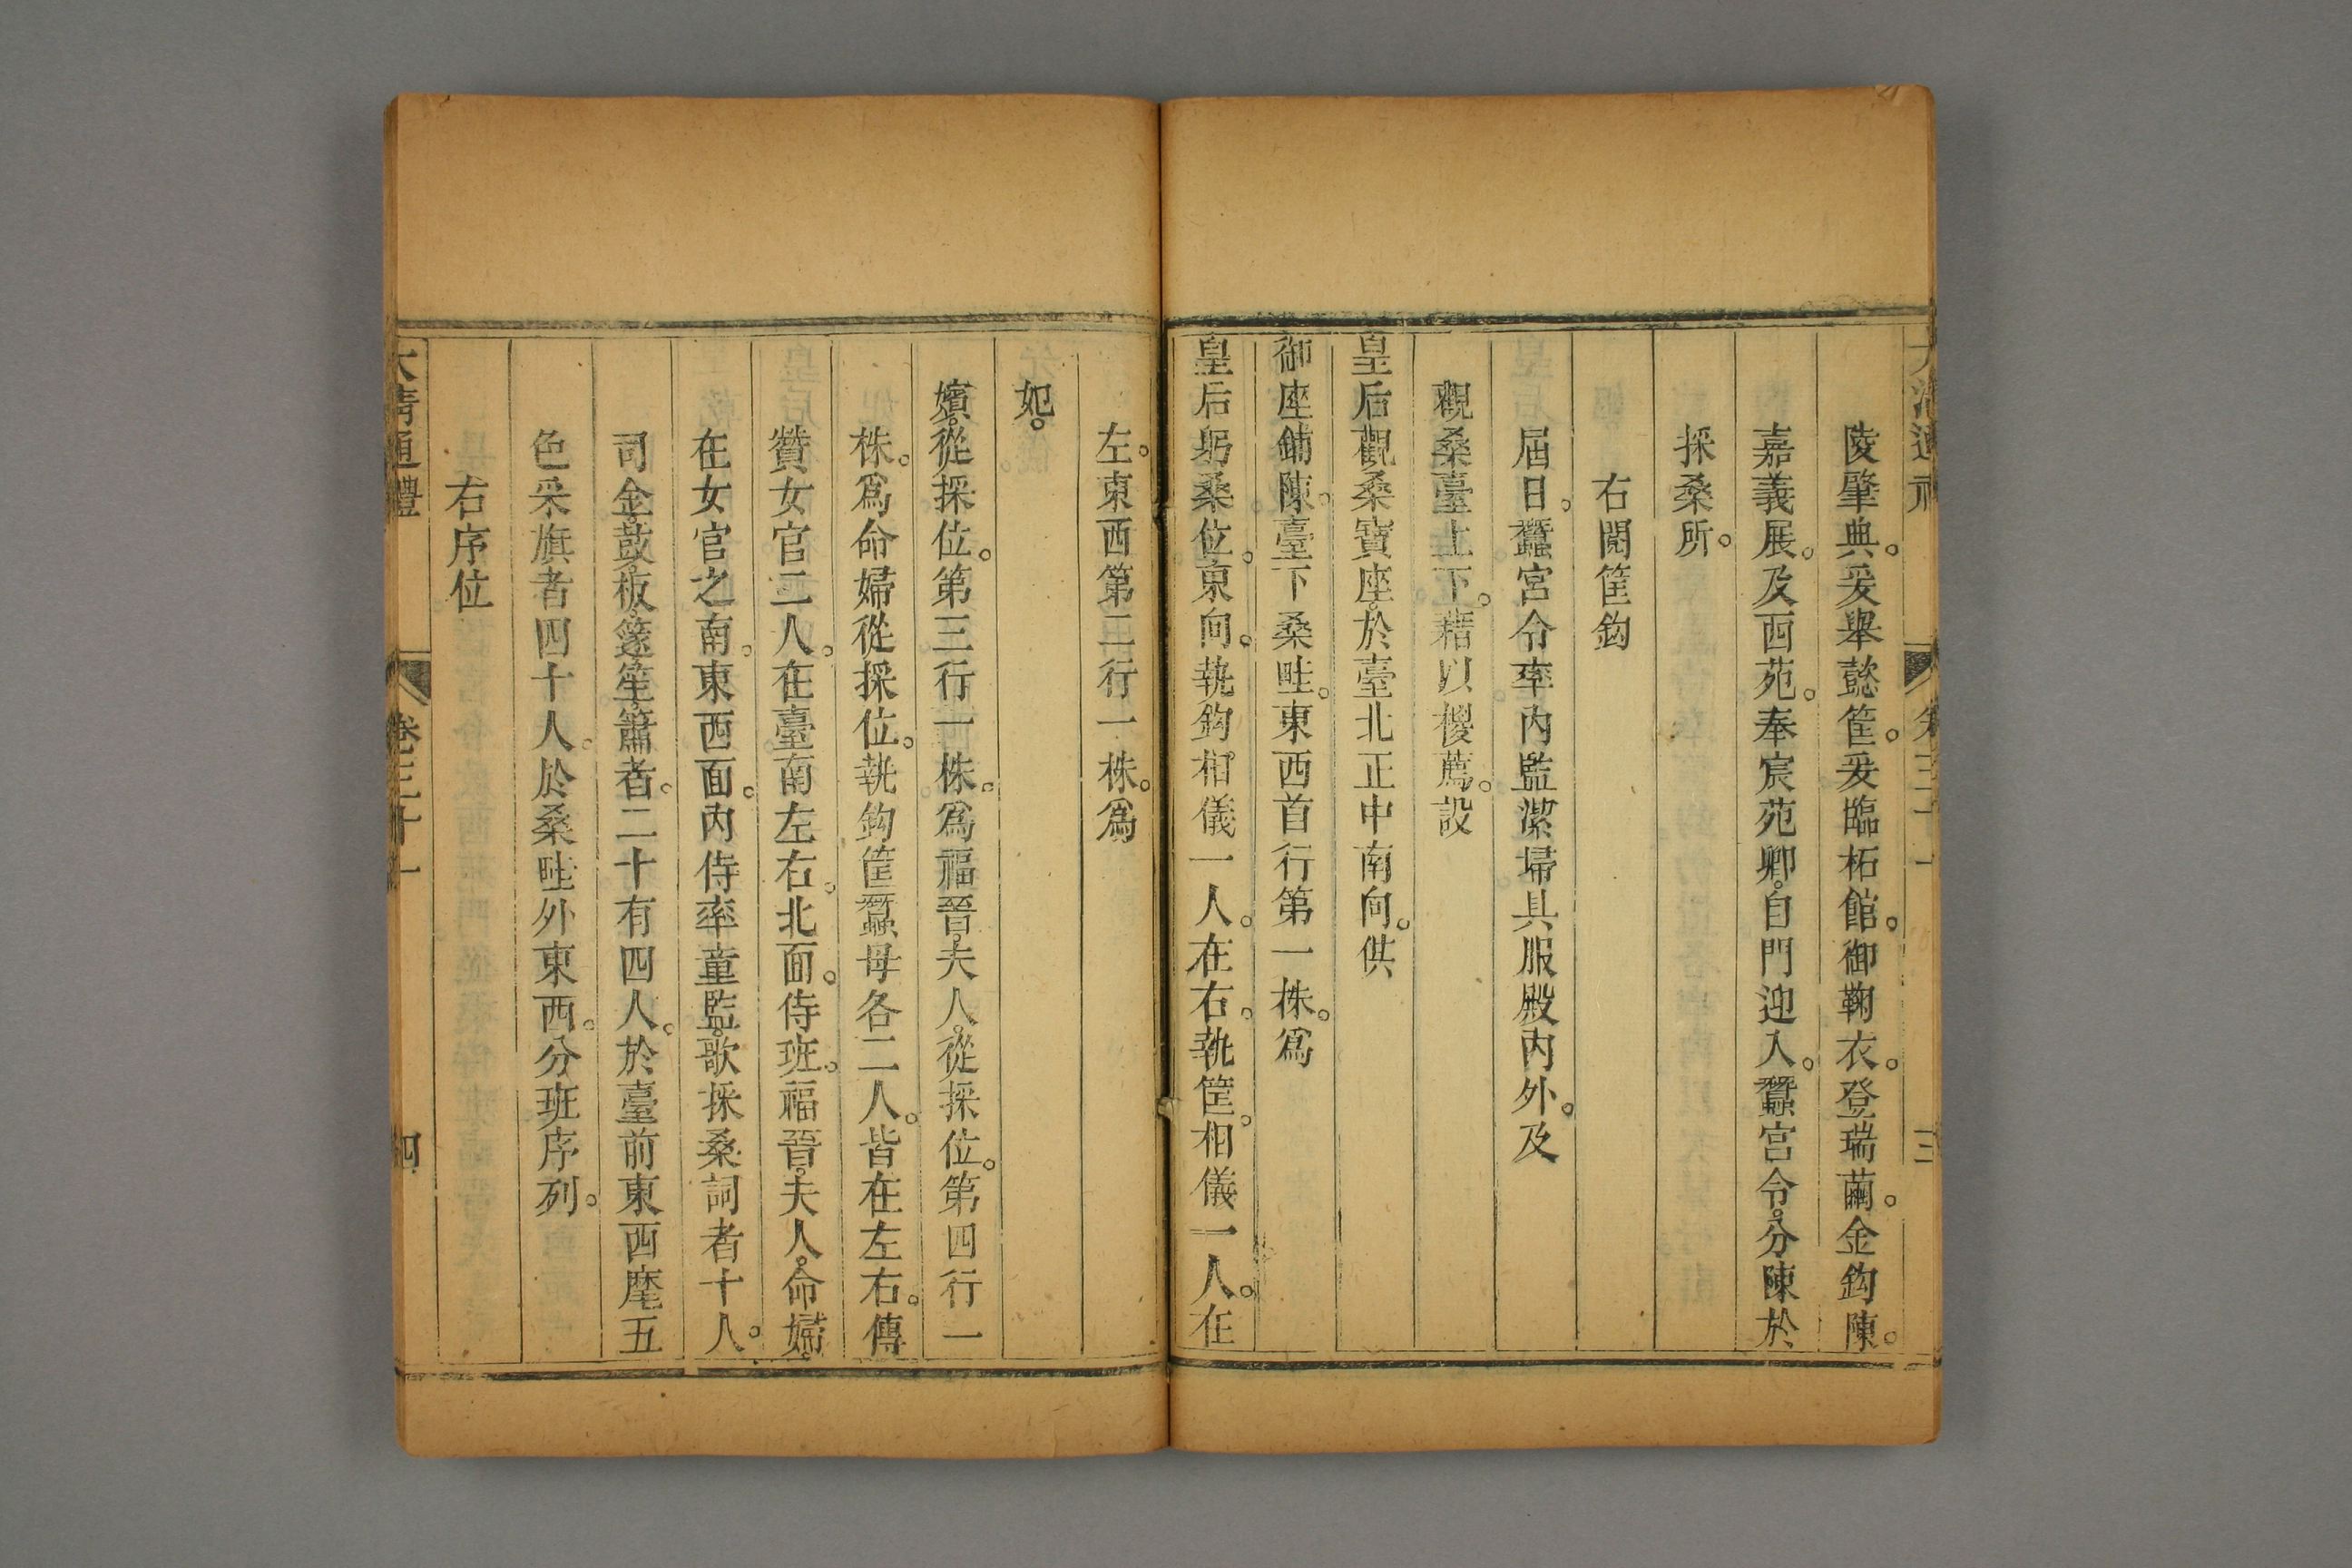 陵肇典。爰舉懿筐。爰臨柘館。御鞠衣。登瑞繭。金鈎陳。
嘉義展。及西苑。奉宸苑卿。自門迎入。蠶宮令。分陳於
採桑所。
右閱筐鈎
屆日。蠶宮令率內監潔埽具服殿內外。及
觀桑臺上下。藉以椶薦。設
皇后觀桑寶座。於臺北正中南向。供
御座鋪陳。臺下桑畦。東西首行第一株。爲
皇后躬桑位。東向。執鈎相儀一人。在右。執筐。相儀一人。在
左。東西第二行一株。爲
妃。
嬪。從採位。第三行一株。爲福晉。夫人。從採位。第四行一
株。爲命婦從採位。執鈎筐蠶母各二人。皆在左右。傳
贊女官二人。在臺南左右。北面。侍班。福晉。夫人。命婦。
在女官之南。東西面。內侍率童監。歌採桑詞者十人。
司金。鼓。板。篴。笙。簫者。二十有四人。於臺前東西麾五
色采旗者四十人。於桑畦外東西。分班序列。
右序位
大清通禮
卷三十一
四